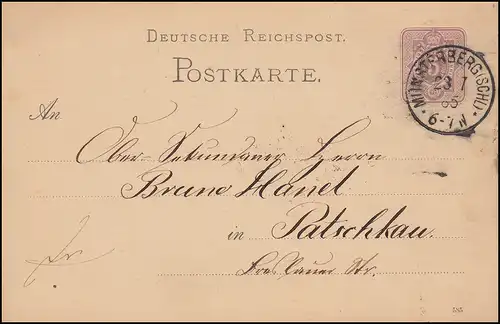 DEUTSCHE REICHSPOST.
POSTKARTE.
MÜNSTERBERG (SCHL)
23 7
85
6-7N
An
Ober-Sekundaner Herrn
Bruno Hanel
in Patschkau.
Breslauer Str.
585